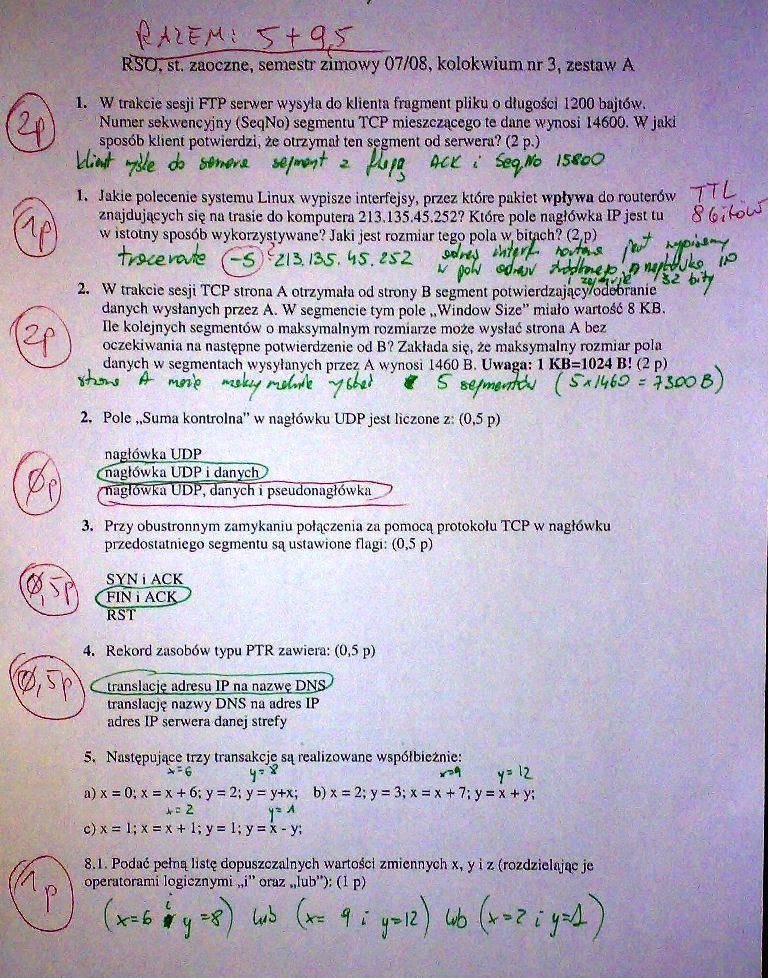 RAZEM: 5 + 9,5
RSO, st. zaoczne, semestr zimowy 07/08, kolokwium nr 3, zestaw A
2p
1. W trakcie sesji FTP serwer wysyła do klienta fragment pliku o długości 1200 bajtów.
Numer sekwencyjny (SeqNo) segmentu TCP mieszczącego te dane wynosi 14600. W jaki
sposób klient potwierdzi, że otrzymał ten segment od serwera? (2 p.)
klient wyśle do serwera segment z flagą ACK i SeqNo 15800
1p
1. Jakie polecenie systemu Linux wypisze interfejsy, przez które pakiet wpływa do routerów
TTL
znajdujących się na trasie do komputera 213.135.45.252? Które pole nagłówka IP jest tu
8 bitów
w istotny sposób wykorzystywane? Jaki jest rozmiar tego pola w bitach? (2 p)
traceroute -S ? 213.135.45.252
adres interf. routera jest wypisany
w polu adresu źródłowego nagłówka IP
i zajmuje 32 bity
2p
2. W trakcie sesji TCP strona A otrzymała od strony B segment potwierdzający odebranie
danych wysłanych przez A. W segmencie tym pole „Window Size” miało wartość 8 KB.
Ile kolejnych segmentów o maksymalnym rozmiarze może wysłać strona A bez
oczekiwania na następne potwierdzenie od B? Zakłada się, że maksymalny rozmiar pola
danych w segmentach wysyłanych przez A wynosi 1460 B. Uwaga: 1 KB=1024 B! (2 p)
strona A może maksymalnie wysłać 5 segmentów (5x1460 = 7300 B)
2. Pole „Suma kontrolna” w nagłówku UDP jest liczone z: (0,5 p)
0p
nagłówka UDP
nagłówka UDP i danych
nagłówka UDP, danych i pseudonagłówka
3. Przy obustronnym zamykaniu połączenia za pomocą protokołu TCP w nagłówku
przedostatniego segmentu są ustawione flagi: (0,5 p)
0,5p
SYN i ACK
FIN i ACK
RST
4. Rekord zasobów typu PTR zawiera: (0,5 p)
0,5p
translację adresu IP na nazwę DNS
translację nazwy DNS na adres IP
adres IP serwera danej strefy
5. Następujące trzy transakcje są realizowane współbieżnie:
x=6 y=8 x=9 y=12
a) x = 0; x = x + 6; y = 2; y = y+x; b) x = 2; y = 3; x = x + 7; y = x + y;
x=2 y=1
c) x = 1; x = x + 1; y = 1; y = x - y;
1p
8.1. Podać pełną listę dopuszczalnych wartości zmiennych x, y i z (rozdzielając je
operatorami logicznymi „i” oraz „lub”): (1 p)
(x=6 i y=8) lub (x= 9 i y=12) lub (x=2 i y=1)